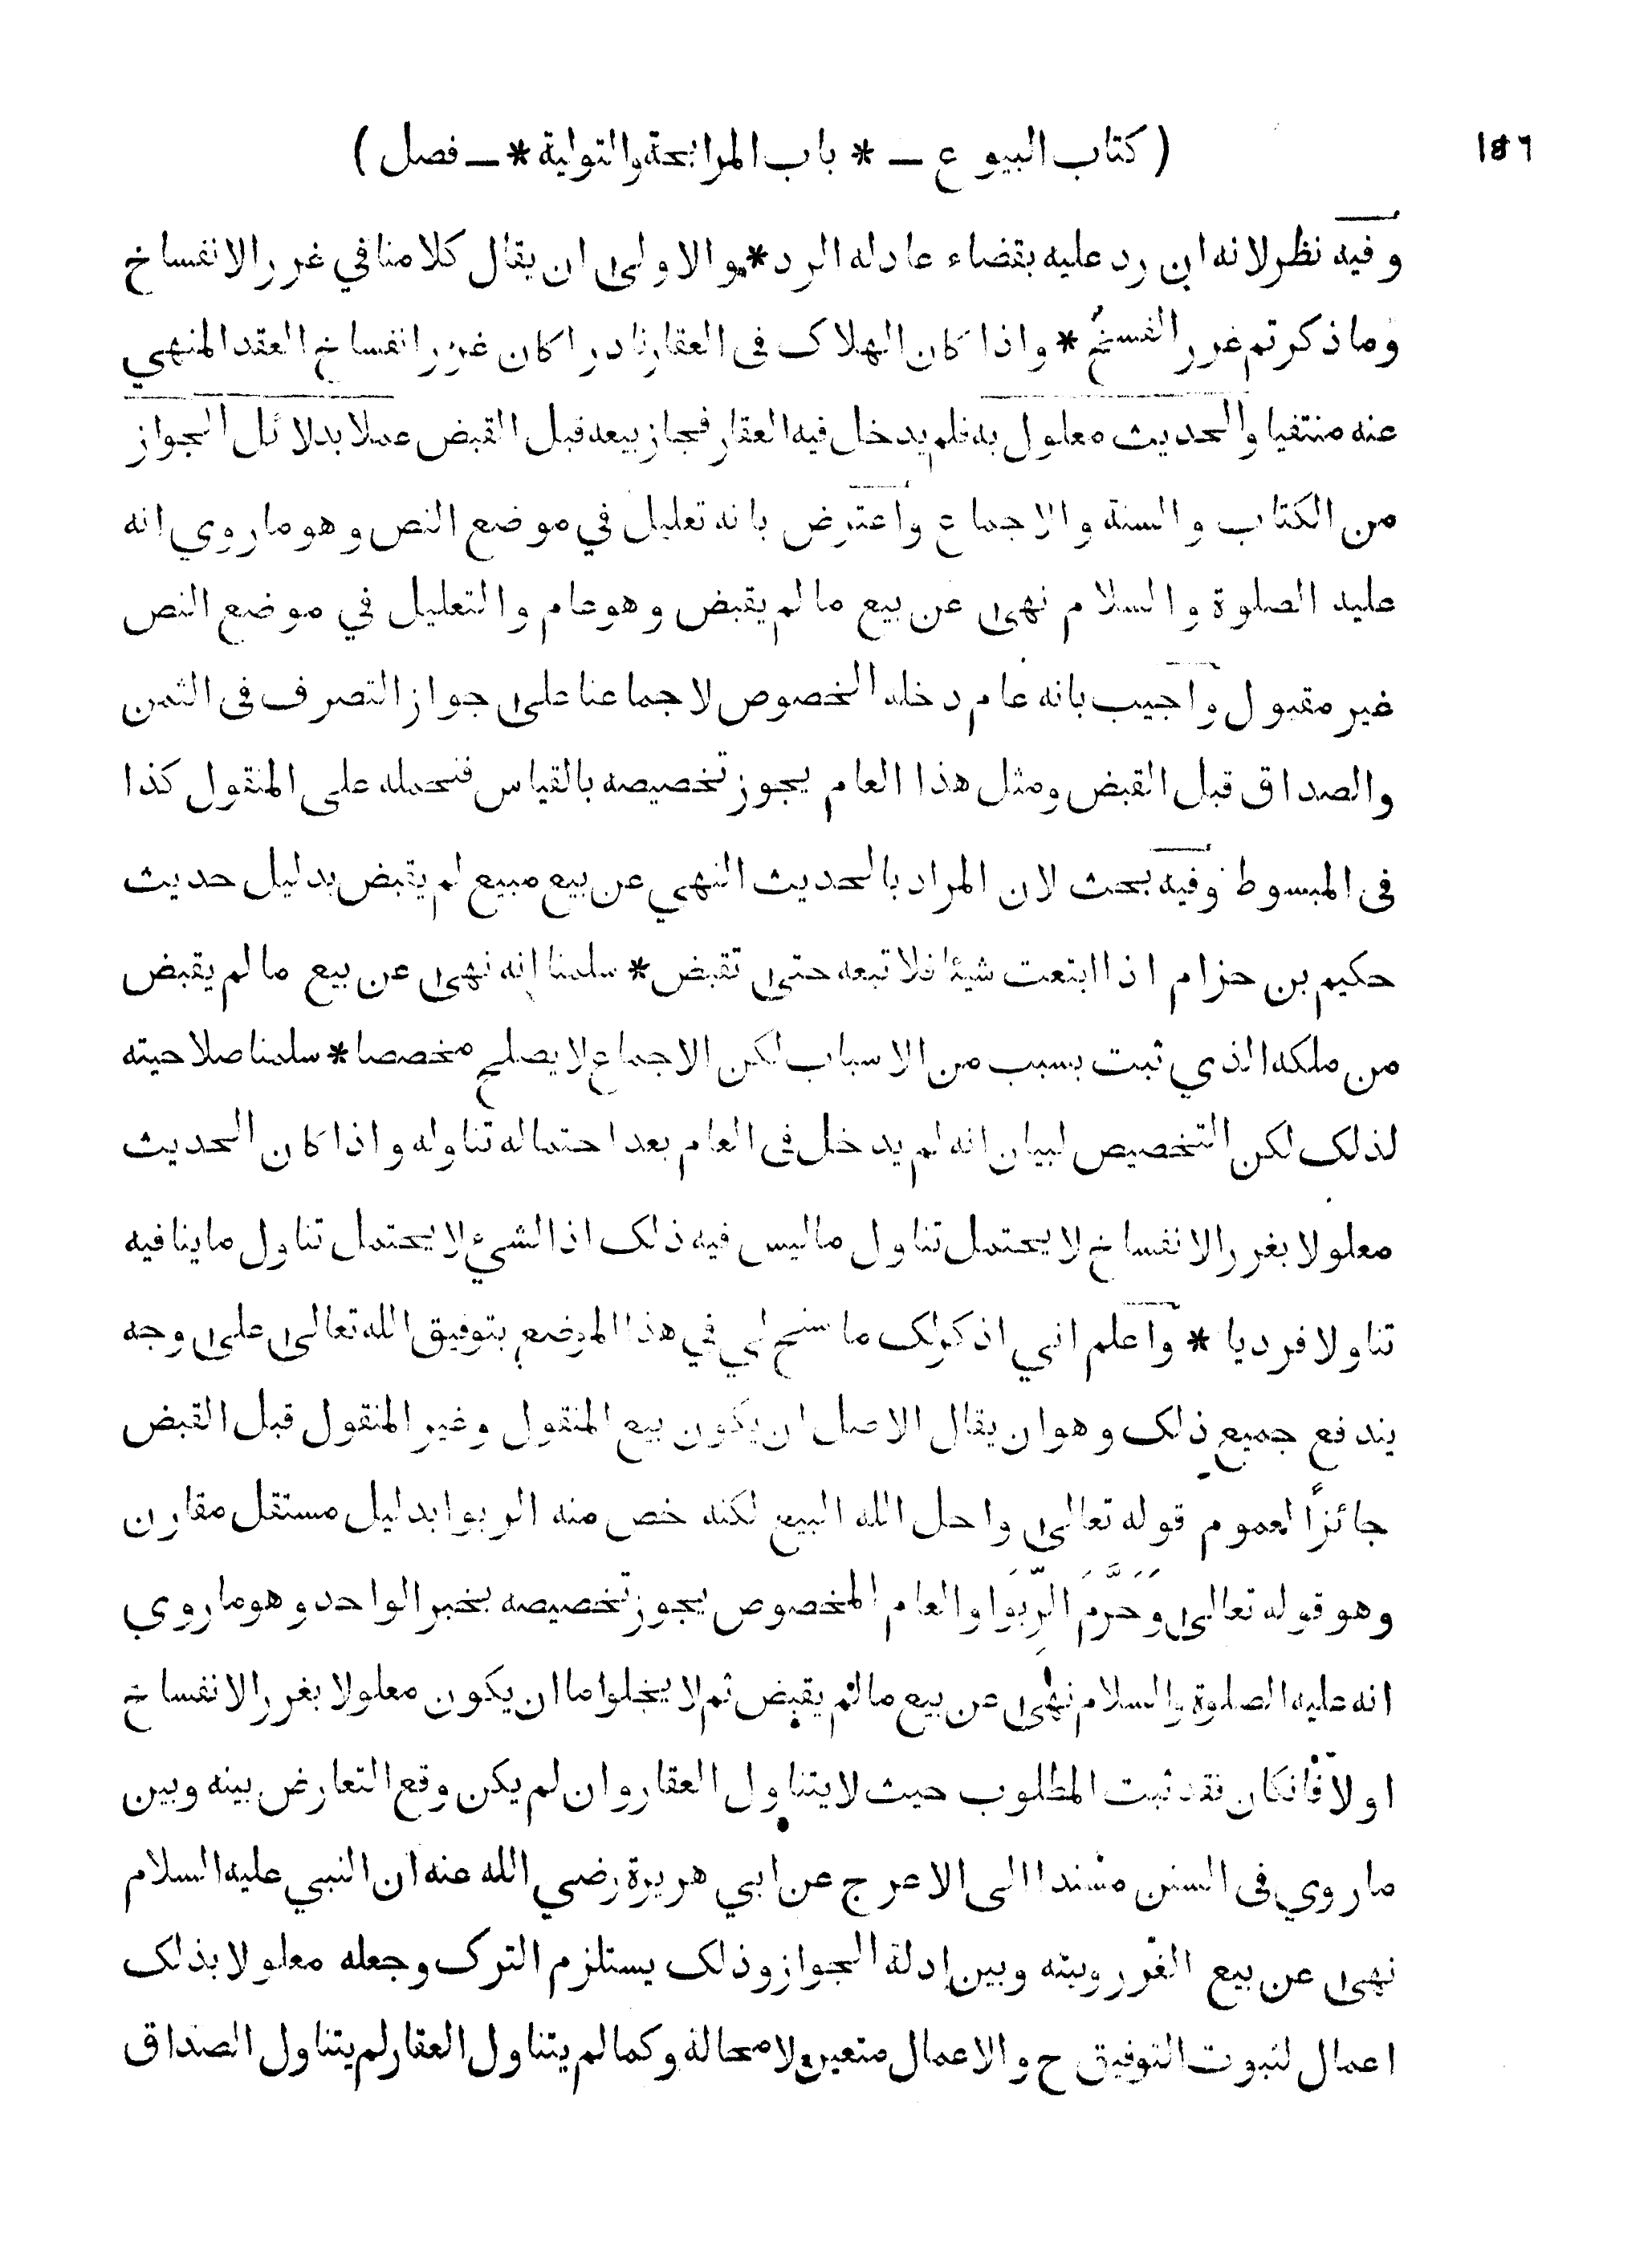 ١٥٦ ( كتاب البيوع — * باب المرابحة والتولية * — فصل )
وفيه نظر لانه ان رد عليه بقضاء عاد له الرد * والاولى ان يقال كلامنا في غرر الانفساخ
وما ذكرتم غرر الفسخ * واذا كان الهلاك في العقار نادرا كان غرر انفساخ العقد المنهي
عنه منتفيا والحديث معلول به فلم يدخل فيه العقار فجاز بيعه قبل القبض عملا بدلائل الجواز
من الكتاب والسنة والاجماع واعترض بانه تعليل في موضع النص وهو ما روي انه
عليه الصلوة والسلام نهى عن بيع ما لم يقبض وهو عام والتعليل في موضع النص
غير مقبول واجيب بانه عام دخله الخصوص لاجماعنا على جواز التصرف في الثمن
والصداق قبل القبض ومثل هذا العام يجوز تخصيصه بالقياس فنحمله على المنقول كذا
في المبسوط وفيه بحث لان المراد بالحديث النهي عن بيع مبيع لم يقبض بدليل حديث
حكيم بن حزام اذا ابتعت شيئا فلا تبعه حتى تقبض * سلمنا انه نهى عن بيع ما لم يقبض
من ملكه الذي ثبت بسبب من الاسباب لكن الاجماع لا يصلح مخصصا * سلمنا صلاحيته
لذلك لكن التخصيص لبيان انه لم يدخل في العام بعد احتماله تناوله واذا كان الحديث
معلولا بغرر الانفساخ لا يحتمل تناول ما ليس فيه ذلك اذ الشيء لا يحتمل تناول ما ينافيه
تناولا فرديا * واعلم اني اذكر لك ما سنح لي في هذا الموضع بتوفيق الله تعالى على وجه
يندفع جميع ذلك وهو ان يقال الاصل ان يكون بيع المنقول وغير المنقول قبل القبض
جائزًا لعموم قوله تعالى واحل الله البيع لكنه خص منه الربوا بدليل مستقل مقارن
وهو قوله تعالى وَحَرَّمَ الرِّبَوا والعام المخصوص يجوز تخصيصه بخبر الواحد وهو ما روي
انه عليه الصلوة والسلام نهى عن بيع ما لم يقبض ثم لا يخلوا ما ان يكون معلولا بغرر الانفساخ
او لا فانكان فقد ثبت المطلوب حيث لا يتناول العقار وان لم يكن وقع التعارض بينه وبين
ما روي في السنن مسندا الى الاعرج عن ابي هريرة رضي الله عنه ان النبي عليه السلام
نهى عن بيع الغرر وبينه وبين ادلة الجواز وذلك يستلزم الترك وجعله معلولا بذلك
اعمال لثبوت التوفيق ح والاعمال متعين لا محالة وكما لم يتناول العقار لم يتناول الصداق